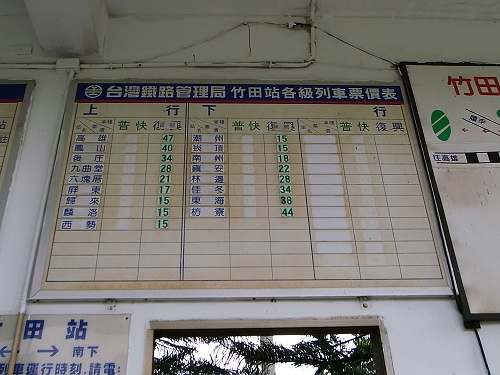 台灣鐵路管理局 竹田站各級列車票價表
上 行 下 行
普 快 復興 普 快 復興 普 快 復興
高雄 47 潮州 15
鳳山 40 崁頂 15
後庄 34 南州 18
九曲堂 28 鎮安 22
六塊厝 21 林邊 28
屏東 17 佳冬 34
歸來 15 東海 38
麟洛 15 枋寮 44
西勢 15
竹田
往高雄
田 站
南下
列車運行時刻.請電: